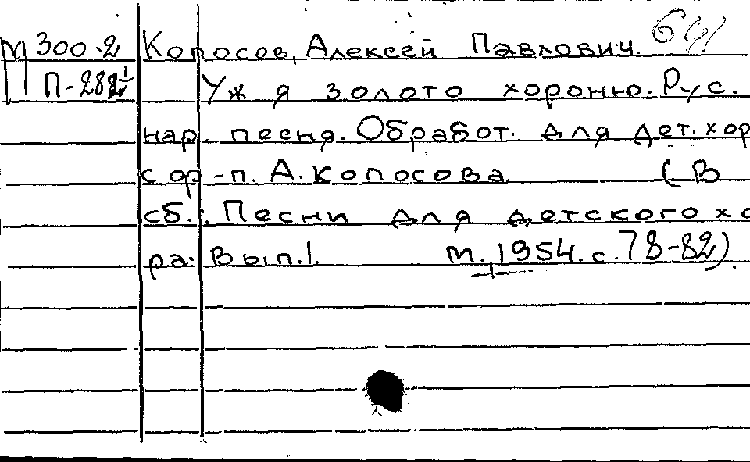 М 300.2 Колосов, Алексей Павлович.
П-282¹ Уж я золото хороню. Рус.
нар. песня. Обработ. для дет. хор
с ф-п. А. Колосова (В
сб.: Песни для детского хо
ра. Вып. 1. М., 1954. с. 78-82).